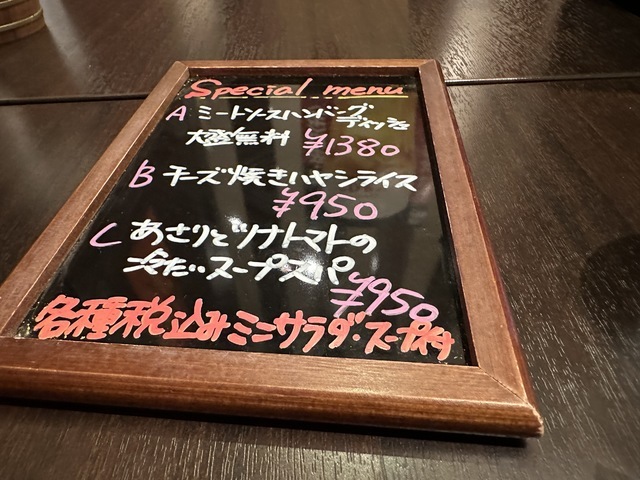 Special menu
A ミートソースハンバーグ
ディッシュ
大盛無料 ¥1380
B チーズ焼きハヤシライス
¥950
C あさりとツナトマトの
冷たいスープスパ
¥950
各種税込みミニサラダ・スープ付